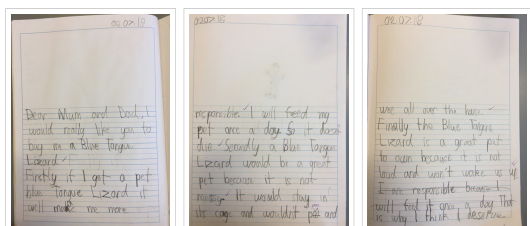 02.07.18
Dear Mum and Dad, I
would really like you to
buy me a Blue Tongue
Lizard.
Firstly if I get a pet
blue Tongue Lizard it
will make me more
02.07.18
responsible. I will feed my
pet once a day so it doesnt
die. Secondly a Blue Tongue
Lizard would be a great
pet because it is not
noissy. It would stay in
its cage and wouldn't and
02.07.18
wee all over the house.
Finally the Blue Tongue
Lizard is a great pet
to own because it is not
loud and won't wake us up
I am responsible because I
will feed it once a day That
is why I think I deserve